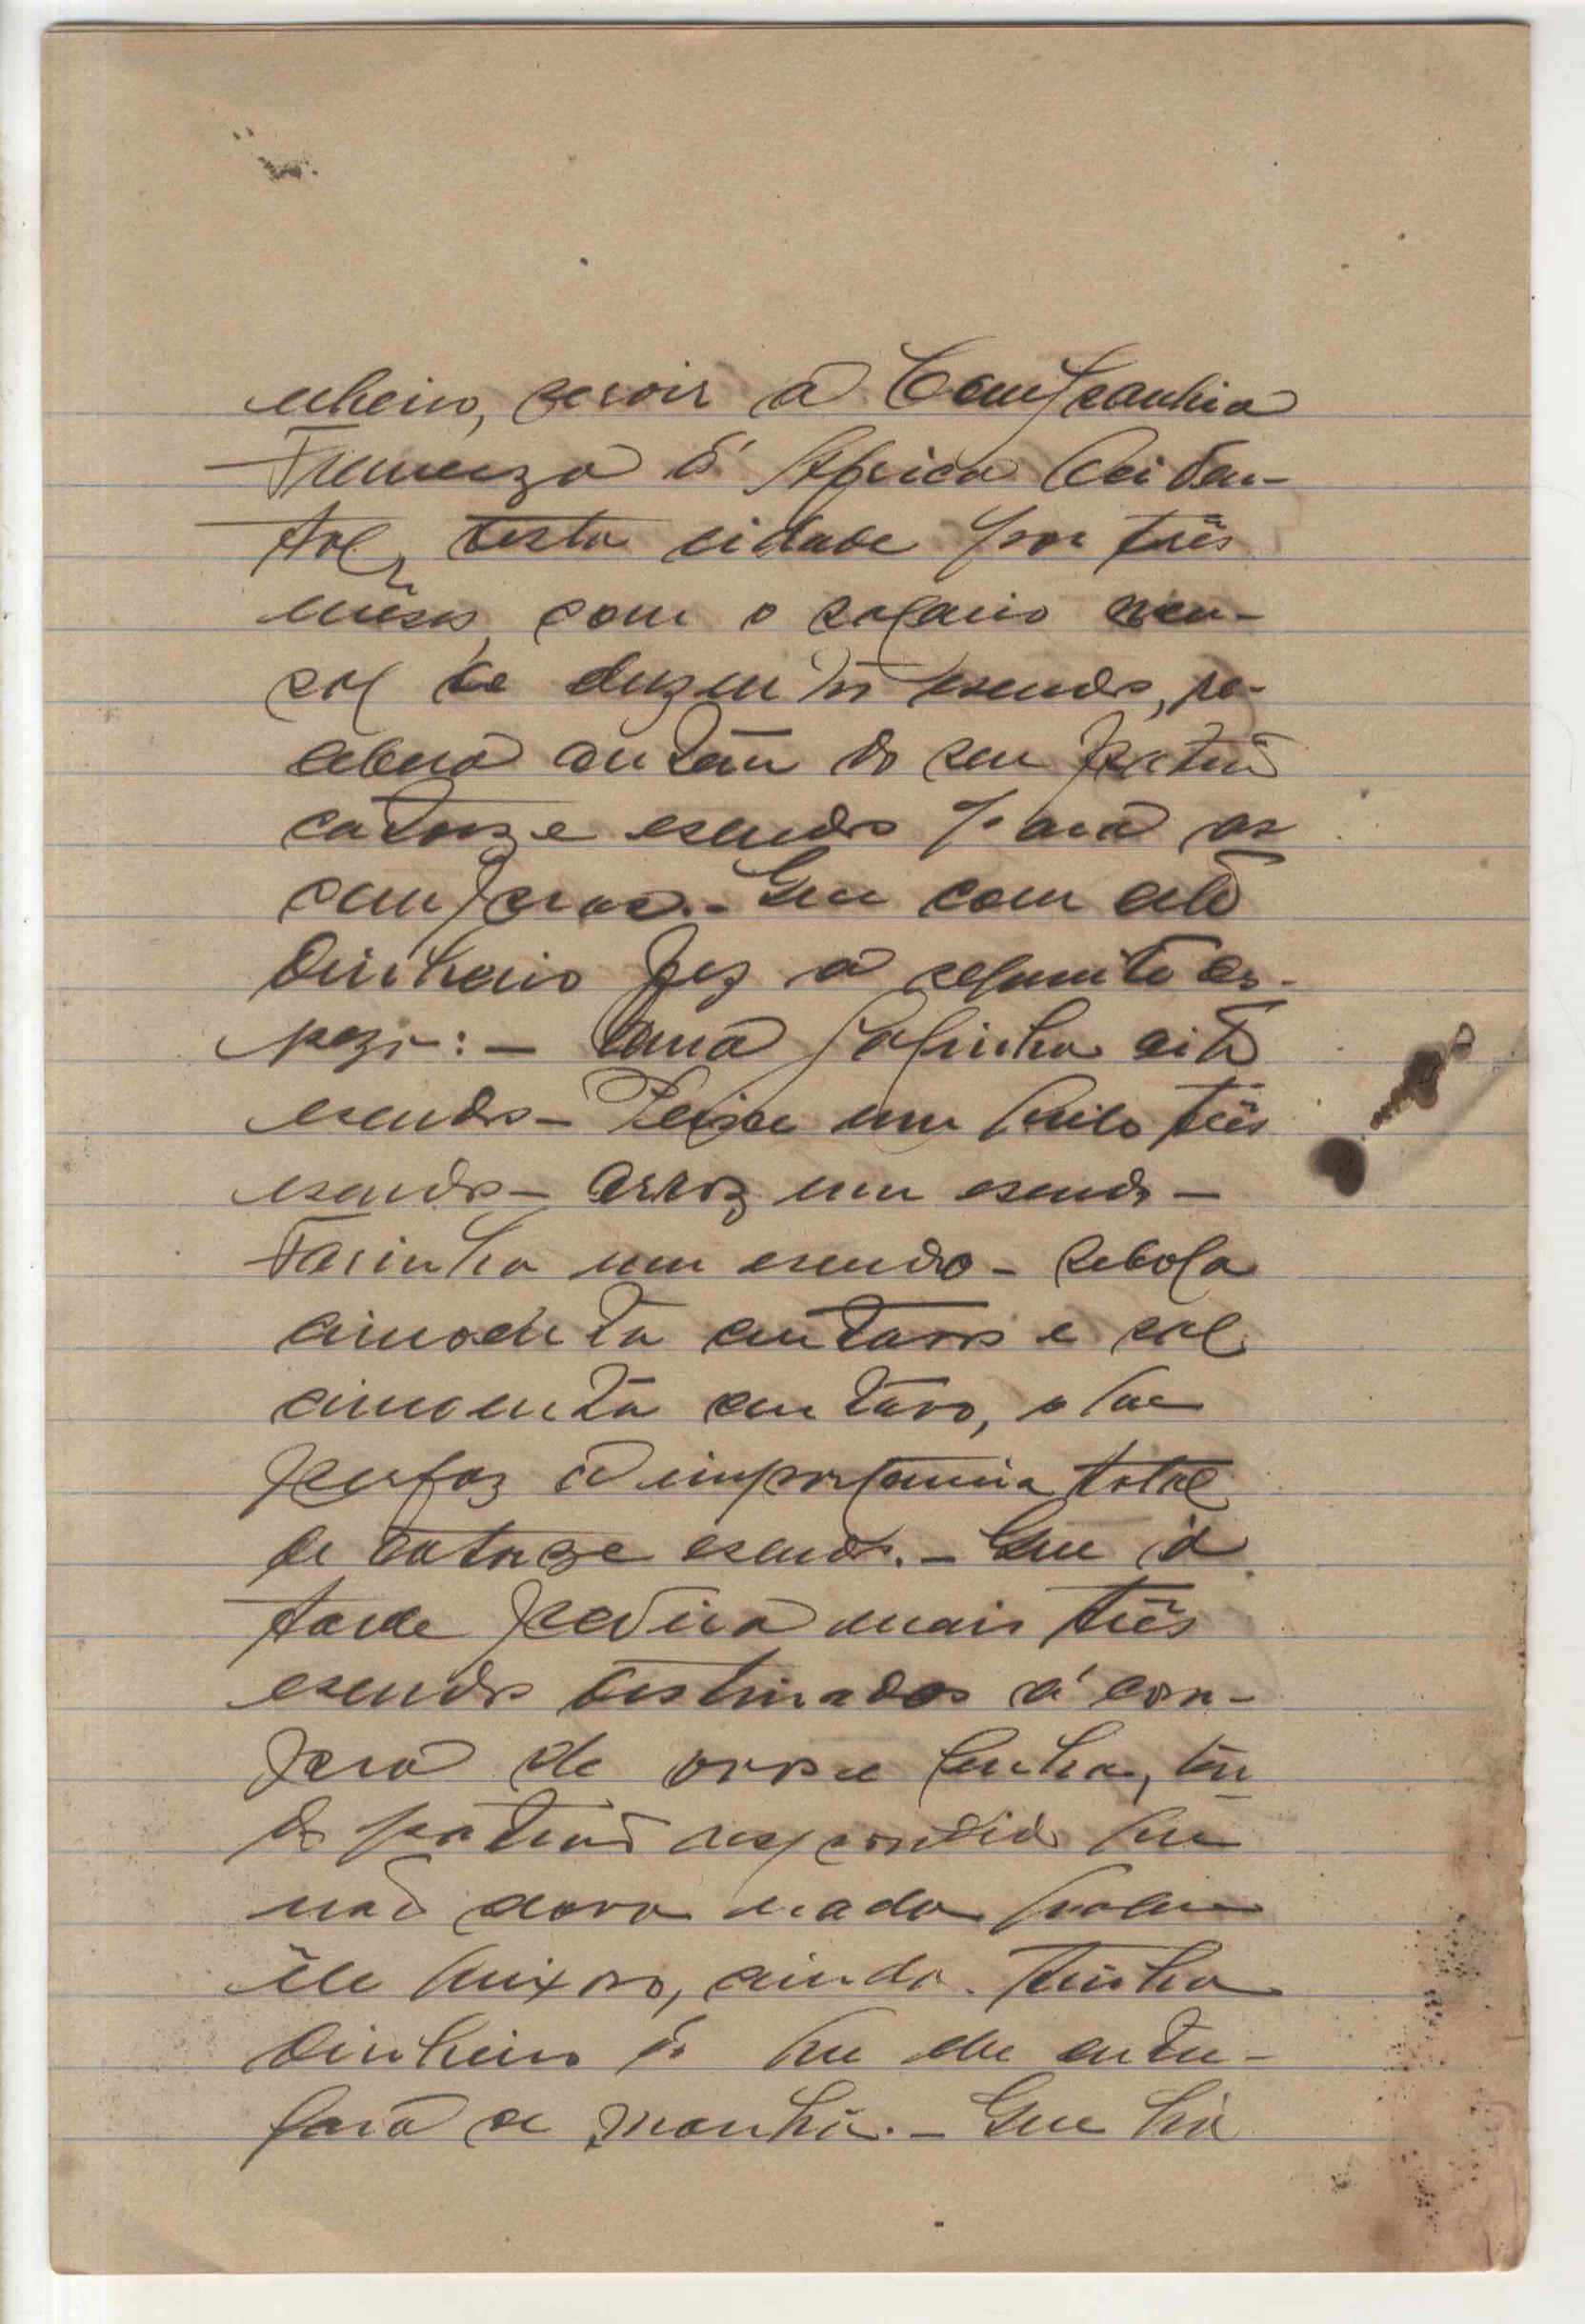 nheiro, servir a Companhia
Franceza d' Africa Ociden-
tal, desta cidade por três
mêses, com o salario men-
sal de duzentos escudos, re-
cebera ontem do seu patrão
catorze escudos para as
compras.- Que com este
dinheiro fez a seguinte des-
peza:- Uma galinha oito
escudos- Peixe um quilo três
escudos- arroz um escudo-
Farinha um escudo- Sebola
cincoenta centavos e sal
cincoenta centavo, o que
perfaz a importancia total
de catorze escudos.- Que á
tarde pedira mais três
escudos destinados á com-
pra de ovos e lenha, ten-
do patrão respondido que
não dava nada porque
êle queixoso, ainda tinha
dinheiro do que lhe entre-
gara de manhã.- Que ha